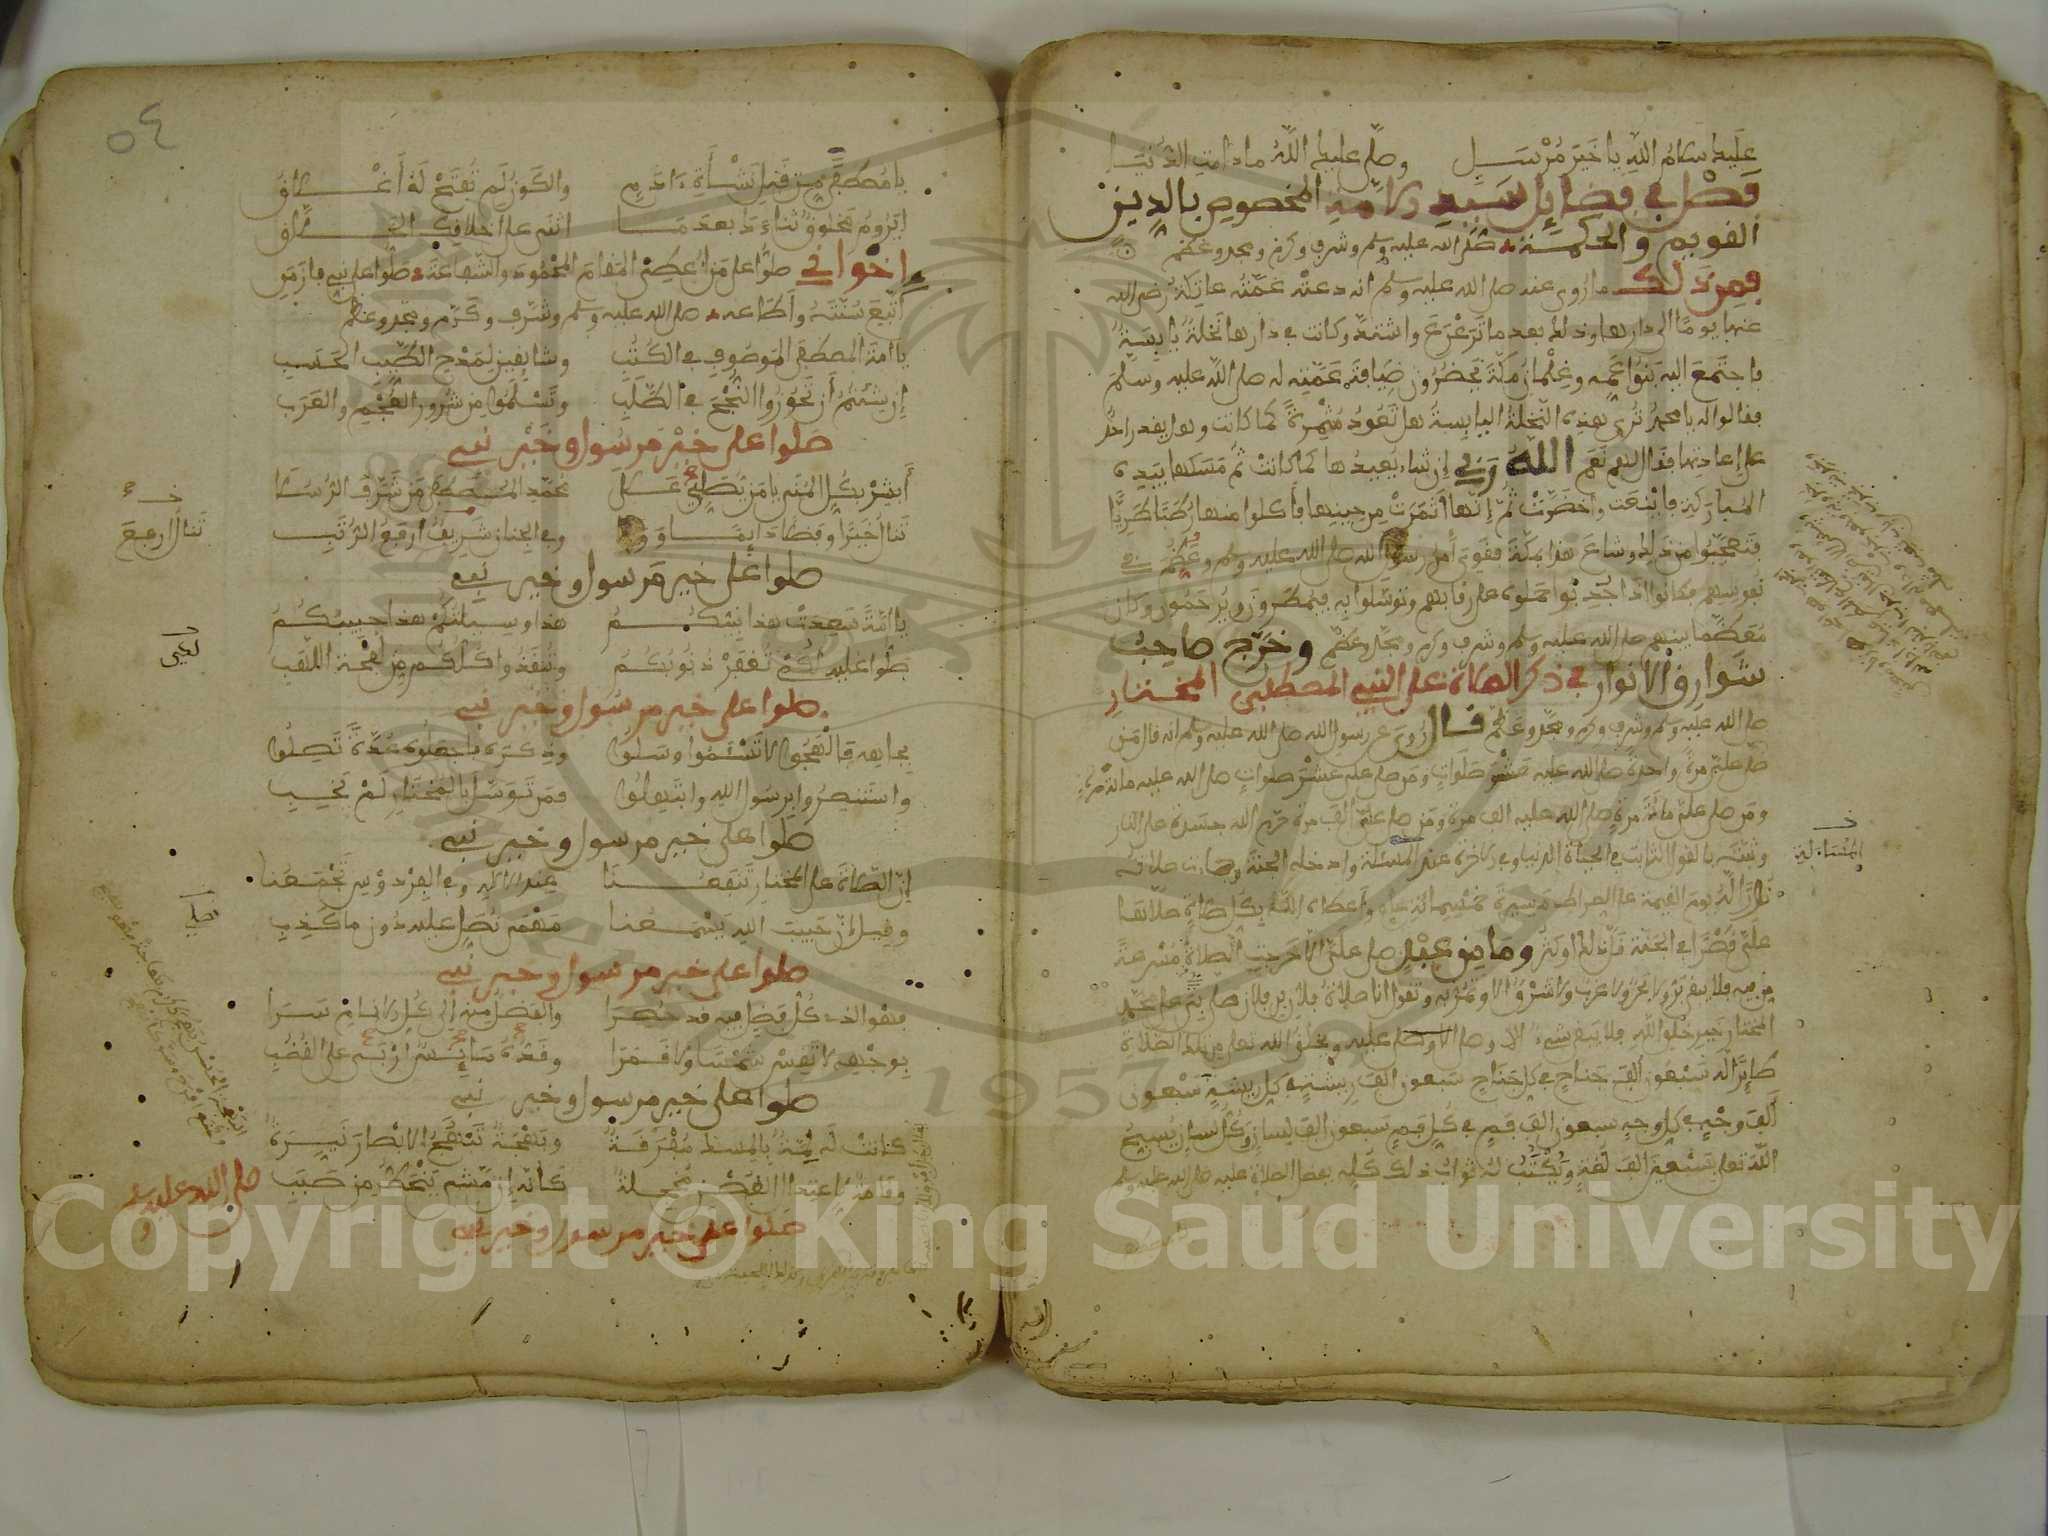 عليك سلام الله يا خير مرسل وصلى عليك الله ما دامت الدنيا
فصل في فضائل سيد الامة المخصوص بالدين
القويم والحكمة صلى الله عليه وسلم وشرف وكرم ومجد وعظم
فمن ذلك ما روي عنه صلى الله عليه وسلم انه دعته عمته عاتكة رضي الله
عنها يوما الى دارها وذلك بعد ما ترعرع واشتد وكانت في دارها نخلة يابسة
فاجتمع اليه بنوا عمه وغلمان مكة يحضرون ضيافة عمته له صلى الله عليه وسلم
فقالوا له يا محمد ترى هذه النخلة اليابسة هل تعود مثمرة كما كانت وهل يقدر احد
على إعادتها فقال لهم نعم الله ربي إن شاء يعيدها كما كانت ثم مسكها بيده
المباركة فاينعت واخضرت ثم إنها اثمرت من حينها فأكلوا منها رطبا طريا
فتعجبوا من ذلك وشاع هذا بمكة فقوي أمر رسول الله صلى الله عليه وسلم وعظم في
نفوسهم فكانوا اذا اجدبوا حملوه على رقابهم وتوسلوا به فيمطرون ويرحمون وكان
معظما بينهم صلى الله عليه وسلم وشرف وكرم ومجد وعظم وخرج صاحب
شوارق الانوار في ذكر الصلاة على النبي المصطفى المختار
صلى الله عليه وسلم وشرف وكرم ومجد وعظم قال روي عن رسول الله صلى الله عليه وسلم انه قال من
صلى علي مرة واحدة صلى الله عليه عشر صلوات ومن صلى علي عشر صلوات صلى الله عليه مائة مرة
ومن صلى علي مائة مرة صلى الله عليه الف مرة ومن صلى علي الف مرة حرم الله جسده على النار
وثبته بالقول الثابت في الحياة الدنيا وفي الاخرة عند المسئلة وادخله الجنة وجاءت صلاته
نورا له يوم القيمة على الصراط مسيرة خمسمائة عام واعطاه الله بكل صلاة صلاها
علي قصرا في الجنة قل ذلك او كثر وما من عبد صلى علي الا خرجت الصلاة مسرعة
من فيه فلا يبقى بر ولا بحر ولا غرب ولا شرق الا وتمر به وتقول انا صلاة فلان بن فلان صلى على محمد
المختار خير خلق الله فلا يبقى شيء الا وصلى عليه ويخلق الله تعلى من تلك الصلاة
طائرا له سبعون ألف جناح في كل جناح سبعون الف ريشة في كل ريشة سبعون
ألف وجه في كل وجه سبعون الف فم في كل فم سبعون الف لسان وكل لسان يسبح
الله تعلى بسبعين الف لغة ويكتب له ثواب ذلك كله بفضل الصلاة عليه صلى الله عليه وسلم
المسئلة
٥٤
يا مصطفى من قبل نشأة ءادم والكون لم تفتح له أغلاق
أيروم مخلوق ثناءك بعد ما اثنى على اخلاقك الخلاق
إخواني صلوا على من أعطي المقام المحمود والشفاعة وصلوا على نبي فاز من
اتبع سنته وأطاعه صلى الله عليه وسلم وشرف وكرم ومجد وعظم
يا امة المصطفى الموصوف في الكتب وشايقين لمدح الطيب الحسب
إن شئتم أن تحوزوا النجح في الطلب وتسلموا من شرور العجم والعرب
صلوا على خير مرسول وخير نبي
أبشر بكل المنى يا من يصلي على محمد المصطفى من شرف الرسلا
تنال خيرا وفضلا دايما وولا وفي الجنان شريف ارفع الرتب
تنال ارفع
صلوا على خير مرسول وخير نبي
يا أمة سعدت هذا نبيكم هذا وسيلتكم هذا حبيبكم
صلوا عليه لكم تغفر ذنوبكم وتنقذوا كلكم من لفحة اللهب
صلوا على خير مرسول وخير نبي
بجاهه فالهجوا لا تسئموا وسلوا وذكره فاجعلوه عدة تصلوا
واستنصروا برسول الله وابتهلوا فمن توسل بالمختار لم يخب
صلوا على خير مرسول وخير نبي
إن الصلاة على المختار تنفعنا عند الاله وفي الفردوس تجمعنا
وقيل ان حبيب الله يسمعنا مهمى نصلي عليه دون ما كذب
صلوا على خير مرسول وخير نبي
فهو الذي كل فضل فيه قد حصرا والفضل منه الى كل الانام سرا
بوجهه لا تقس شمسا ولا قمرا وقده مايس اربى على القضب
صلوا على خير مرسول وخير نبي
كانت له لمة بالمسك مفرقة وبهجة تبهج الابصار نيرة
وقامة كاعتدال الغصن مخجلة كأنه إن مشى ينحط من صبب
صلى الله عليه وسلم
صلوا على خير مرسول وخير نبي
Copyright © King Saud University
1957